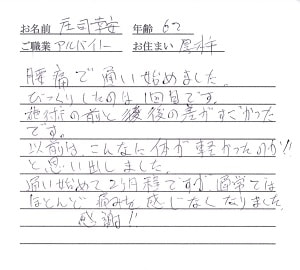 お名前 庄司幸安 年齢 62
ご職業 アルバイト お住まい 厚木
腰痛で通い始めました。
びっくりしたのは1回目です。
施術の前と後の差がすごかった
です。
以前はこんなに体が軽かったのか!!
と思い出しました。
通い始めて2ヶ月程ですが、日常では
ほとんど痛みを感じなくなりました。
感謝!!